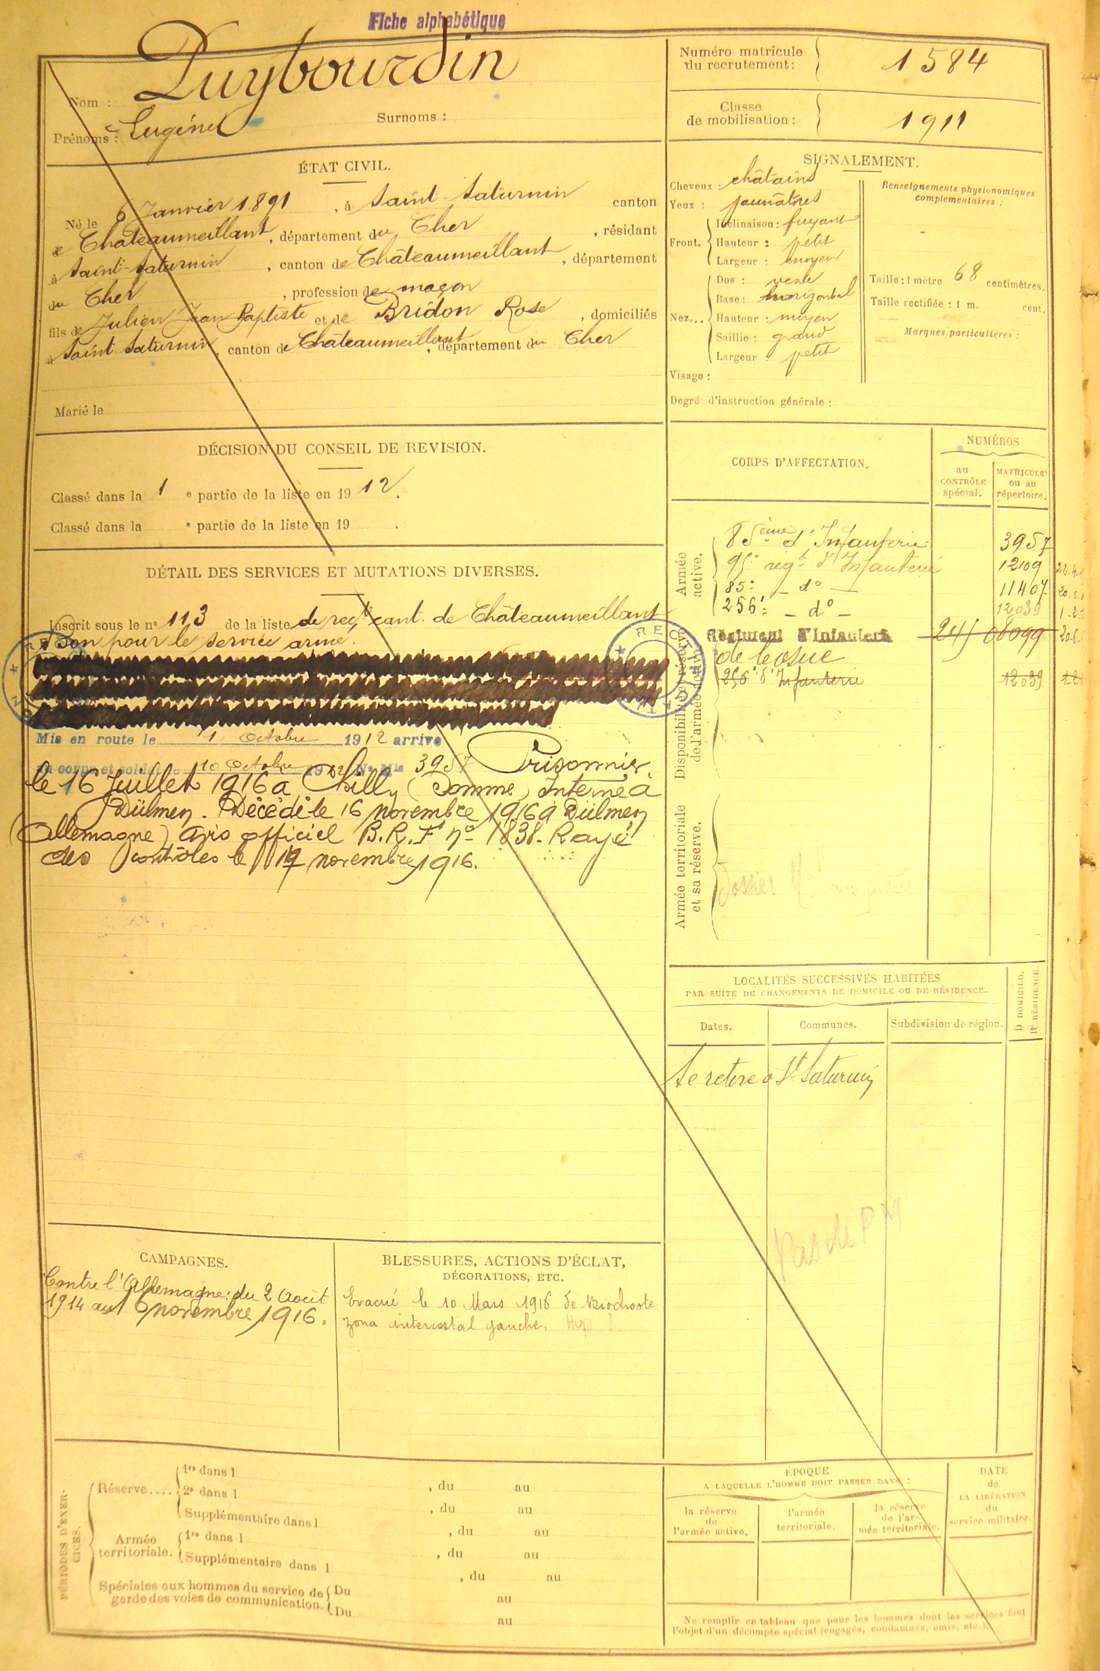 Fiche alphabétique
Nom : Puybourdin
Prénoms : Eugène Surnoms :
Numéro matricule du recrutement : 1584
Classe de mobilisation : 1911
ÉTAT CIVIL.
Né le 6 Janvier 1891, à Saint Saturnin canton
de Châteaumeillant, département du Cher, résidant
à Saint-Saturnin, canton de Châteaumeillant, département
du Cher, profession de maçon
fils de Julien Jean Baptiste et de Bridon Rose, domiciliés
à Saint Saturnin, canton de Châteaumeillant, département du Cher
Marié le
SIGNALEMENT.
Cheveux : châtains
Yeux : jaunâtres
Front. Inclinaison : fuyant
Hauteur : petit
Largeur : moyen
Nez... Dos : vexe
Base : horizontal
Hauteur : moyen
Saillie : grand
Largeur : petit
Visage :
Degré d'instruction générale :
Renseignements physionomiques
complémentaires :
Taille : 1 mètre 68 centimètres.
Taille rectifiée : 1 m. cent.
Marques particulières :
DÉCISION DU CONSEIL DE REVISION.
Classé dans la 1 e partie de la liste en 1912.
Classé dans la e partie de la liste en 19 .
DÉTAIL DES SERVICES ET MUTATIONS DIVERSES.
Inscrit sous le n° 113 de la liste de rect cant. de Châteaumeillant
Bon pour le service armé.
Mis en route le 1 Octobre 1912 arrivé
au corps et soldat le 10 Octobre 1912 No Mle 3957 Prisonnier
le 16 Juillet 1916 à Chilly (Somme) Interné à
Dülmen. Décédé le 16 novembre 1916 à Dülmen
(Allemagne) Avis officiel B.R.F. n° 1838. Rayé
des contrôles le 17 novembre 1916.
CORPS D'AFFECTATION.
NUMÉROS
au
CONTRÔLE
spécial.
MATRICULE
ou au
répertoire.
Armée
active.
85ème d'Infanterie 3957
95e régt d'Infanterie 12109
85e _ do _ 11407
256e _ do _ 12039
Disponibilité et réserve
de l'armée active.
Régiment d'infanterie 241 08099
de Cosne
256e d'Infanterie 12039
Armée territoriale
et sa réserve.
LOCALITÉS SUCCESSIVES HABITÉES
PAR SUITE DE CHANGEMENTS DE DOMICILE OU DE RÉSIDENCE.
Dates. Communes. Subdivision de région. D. DOMICILE. R. RÉSIDENCE
Se retire à St Saturnin
Pas de P M
CAMPAGNES.
Contre l'Allemagne : du 2 Août
1914 au 16 novembre 1916.
BLESSURES, ACTIONS D'ÉCLAT,
DÉCORATIONS, ETC.
Evacué le 10 Mars 1916 de
zona intercostal gauche.
PÉRIODES D'EXERCICES.
Réserve..... 1re dans l , du au
2e dans l , du au
Supplémentaire dans l , du au
Armée
territoriale. 1re dans l , du au
Supplémentaire dans l , du au
Spéciales aux hommes du service de
garde des voies de communication. Du au
Du au
ÉPOQUE
A LAQUELLE L'HOMME DOIT PASSER DANS :
la réserve
de
l'armée active.
l'armée
territoriale.
la réserve
de l'armée territoriale.
DATE
de
LA LIBÉRATION
du
service militaire.
Ne remplir ce tableau que pour les hommes dont les services font
l'objet d'un décompte spécial (engagés, condamnés, omis, etc.).